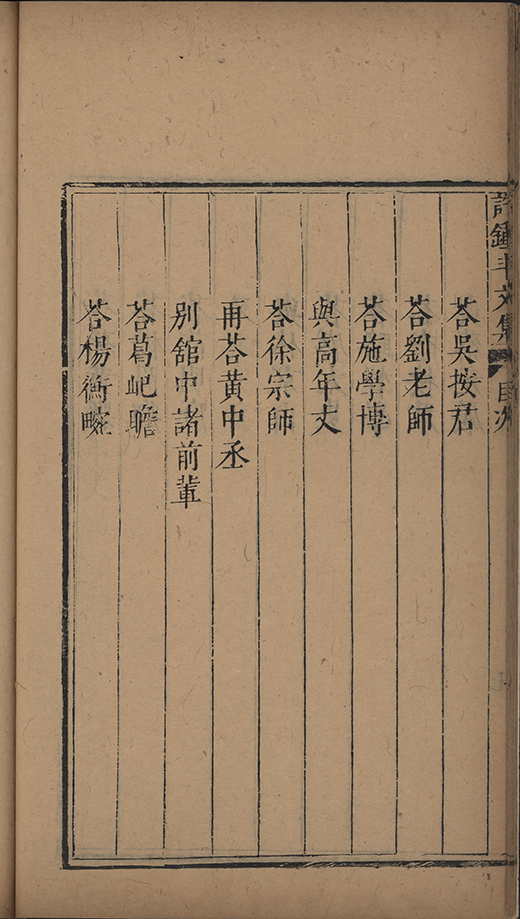 許鍾斗文集 目次
荅吳按君
荅劉老師
荅施學博
與高年丈
荅徐宗師
再荅黃中丞
別舘中諸前輩
荅葛屺瞻
荅楊衡畹